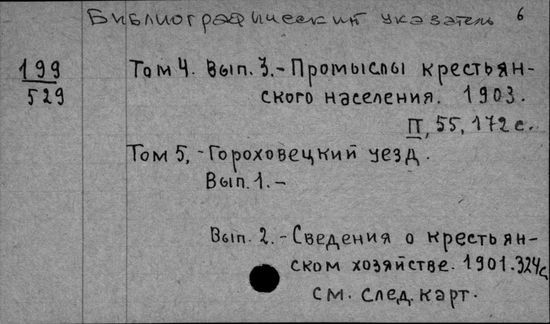 Библиографический указатель 6
199
529
Том 4. Вып. 3.- Промыслы крестьян-
ского населения. 1903.
II, 55, 172 с.
Том 5,- Гороховецкий уезд.
Вып. 1.-
Вып. 2.- Сведения о крестьян-
ском хозяйстве. 1901. 324с.
см. след. карт.